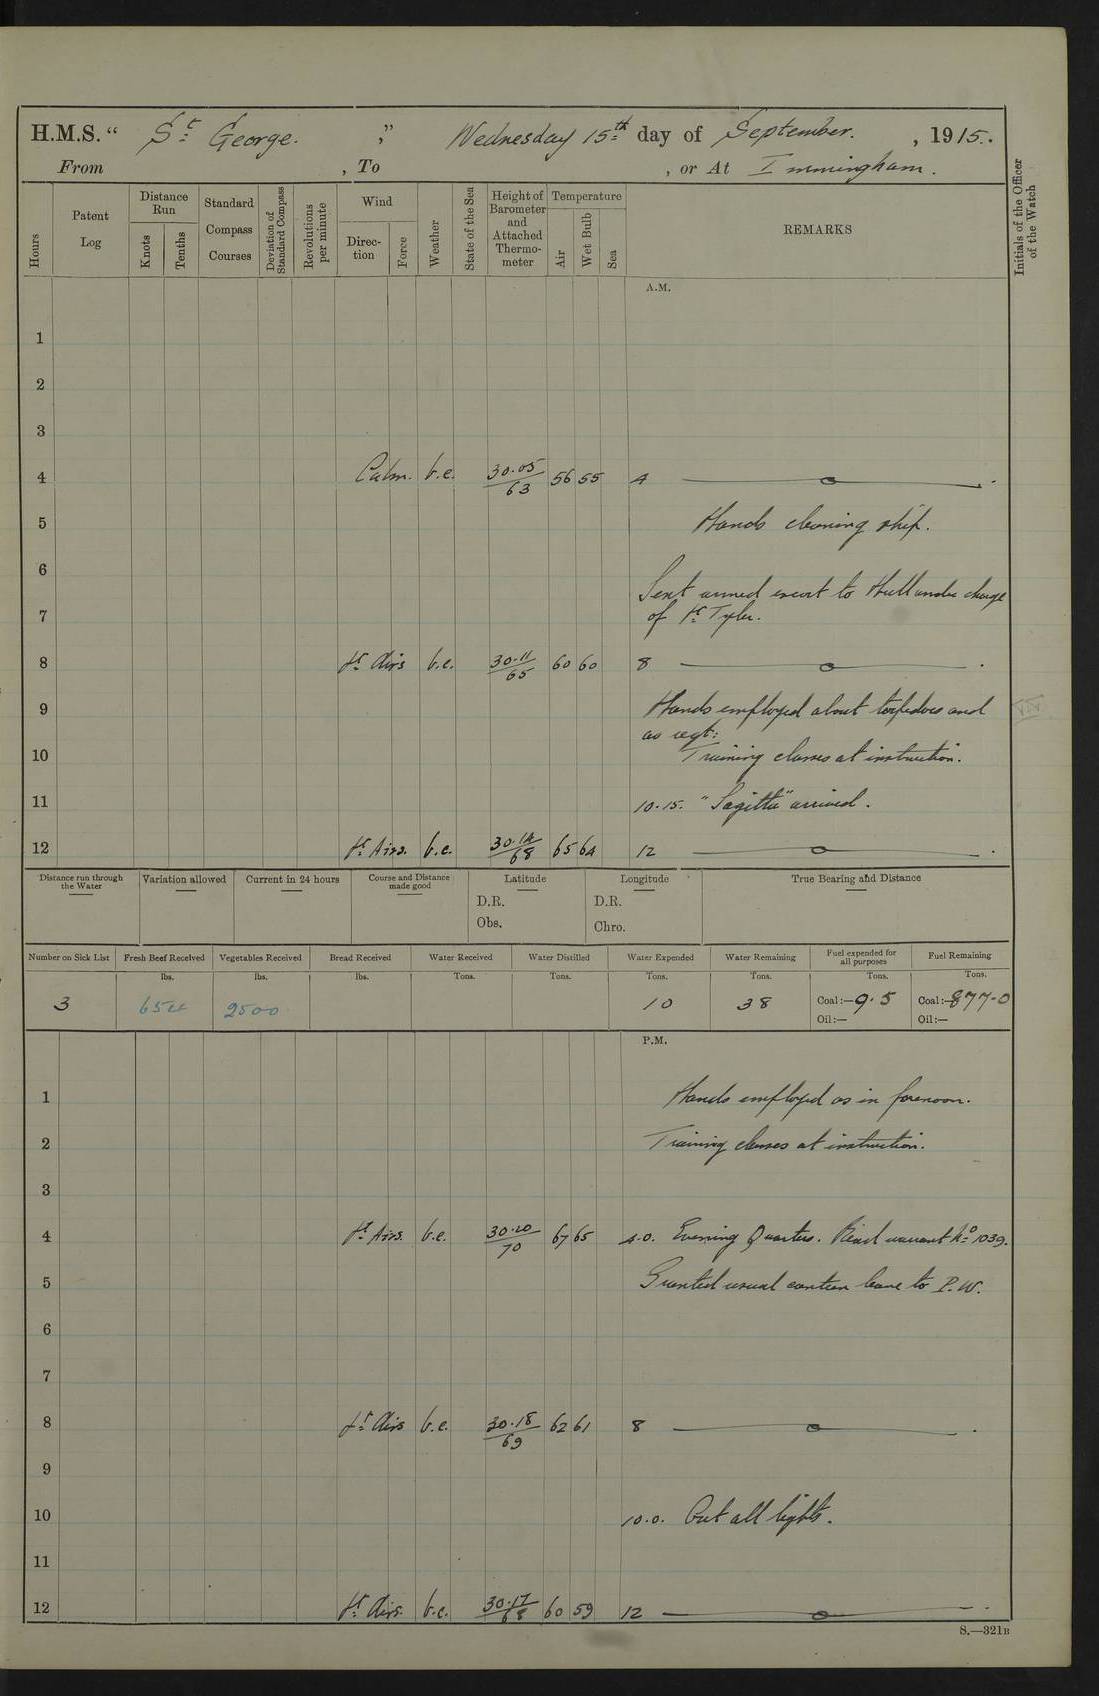 H.M.S. " St George. ," Wednesday 15th day of September. , 1915.
From , To , or At Immingham.
Hours
Patent Log
Distance Run
Knots
Tenths
Standard Compass Courses
Deviation of Standard Compass
Revolutions per minute
Wind
Direction
Force
Weather
State of the Sea
Height of Barometer and Attached Thermo-meter
Temperature
Air
Wet Bulb
Sea
REMARKS
Initials of the Officer of the Watch
A.M.
1
2
3
4 Calm. b.c. 30.05/63 56 55 4
5 Hands cleaning ship.
6
Sent armed escort to Hull under charge
7 of Lt Tyler.
8 Lt Airs b.c. 30.11/65 60 60 8
9 Hands employed about torpedoes and
as reqt:
10 Training classes at instruction.
11 10.15. "Sagitta" arrived.
12 Lt Airs. b.c. 30.14/68 65 64 12
Distance run through the Water
Variation allowed
Current in 24 hours
Course and Distance made good
Latitude
D.R.
Obs.
Longitude
D.R.
Chro.
True Bearing and Distance
Number on Sick List Fresh Beef Received Vegetables Received Bread Received Water Received Water Distilled Water Expended Water Remaining Fuel expended for all purposes Fuel Remaining
lbs. lbs. lbs. Tons. Tons. Tons. Tons. Tons. Tons.
3 654 2500 10 38 Coal:—9.5 Coal:—877.0
Oil:— Oil:—
P.M.
1 Hands employed as in forenoon.
2 Training classes at instruction.
3
4 Lt Airs. b.c. 30.20/70 67 65 4.0. Evening Quarters. Read warrant No 1039.
5 Granted usual canteen leave to P.W.
6
7
8 Lt Airs b.c. 30.18/69 62 61 8
9
10 10.0. Out all lights.
11
12 Lt Airs. b.c. 30.17/68 60 59 12
S.—321B